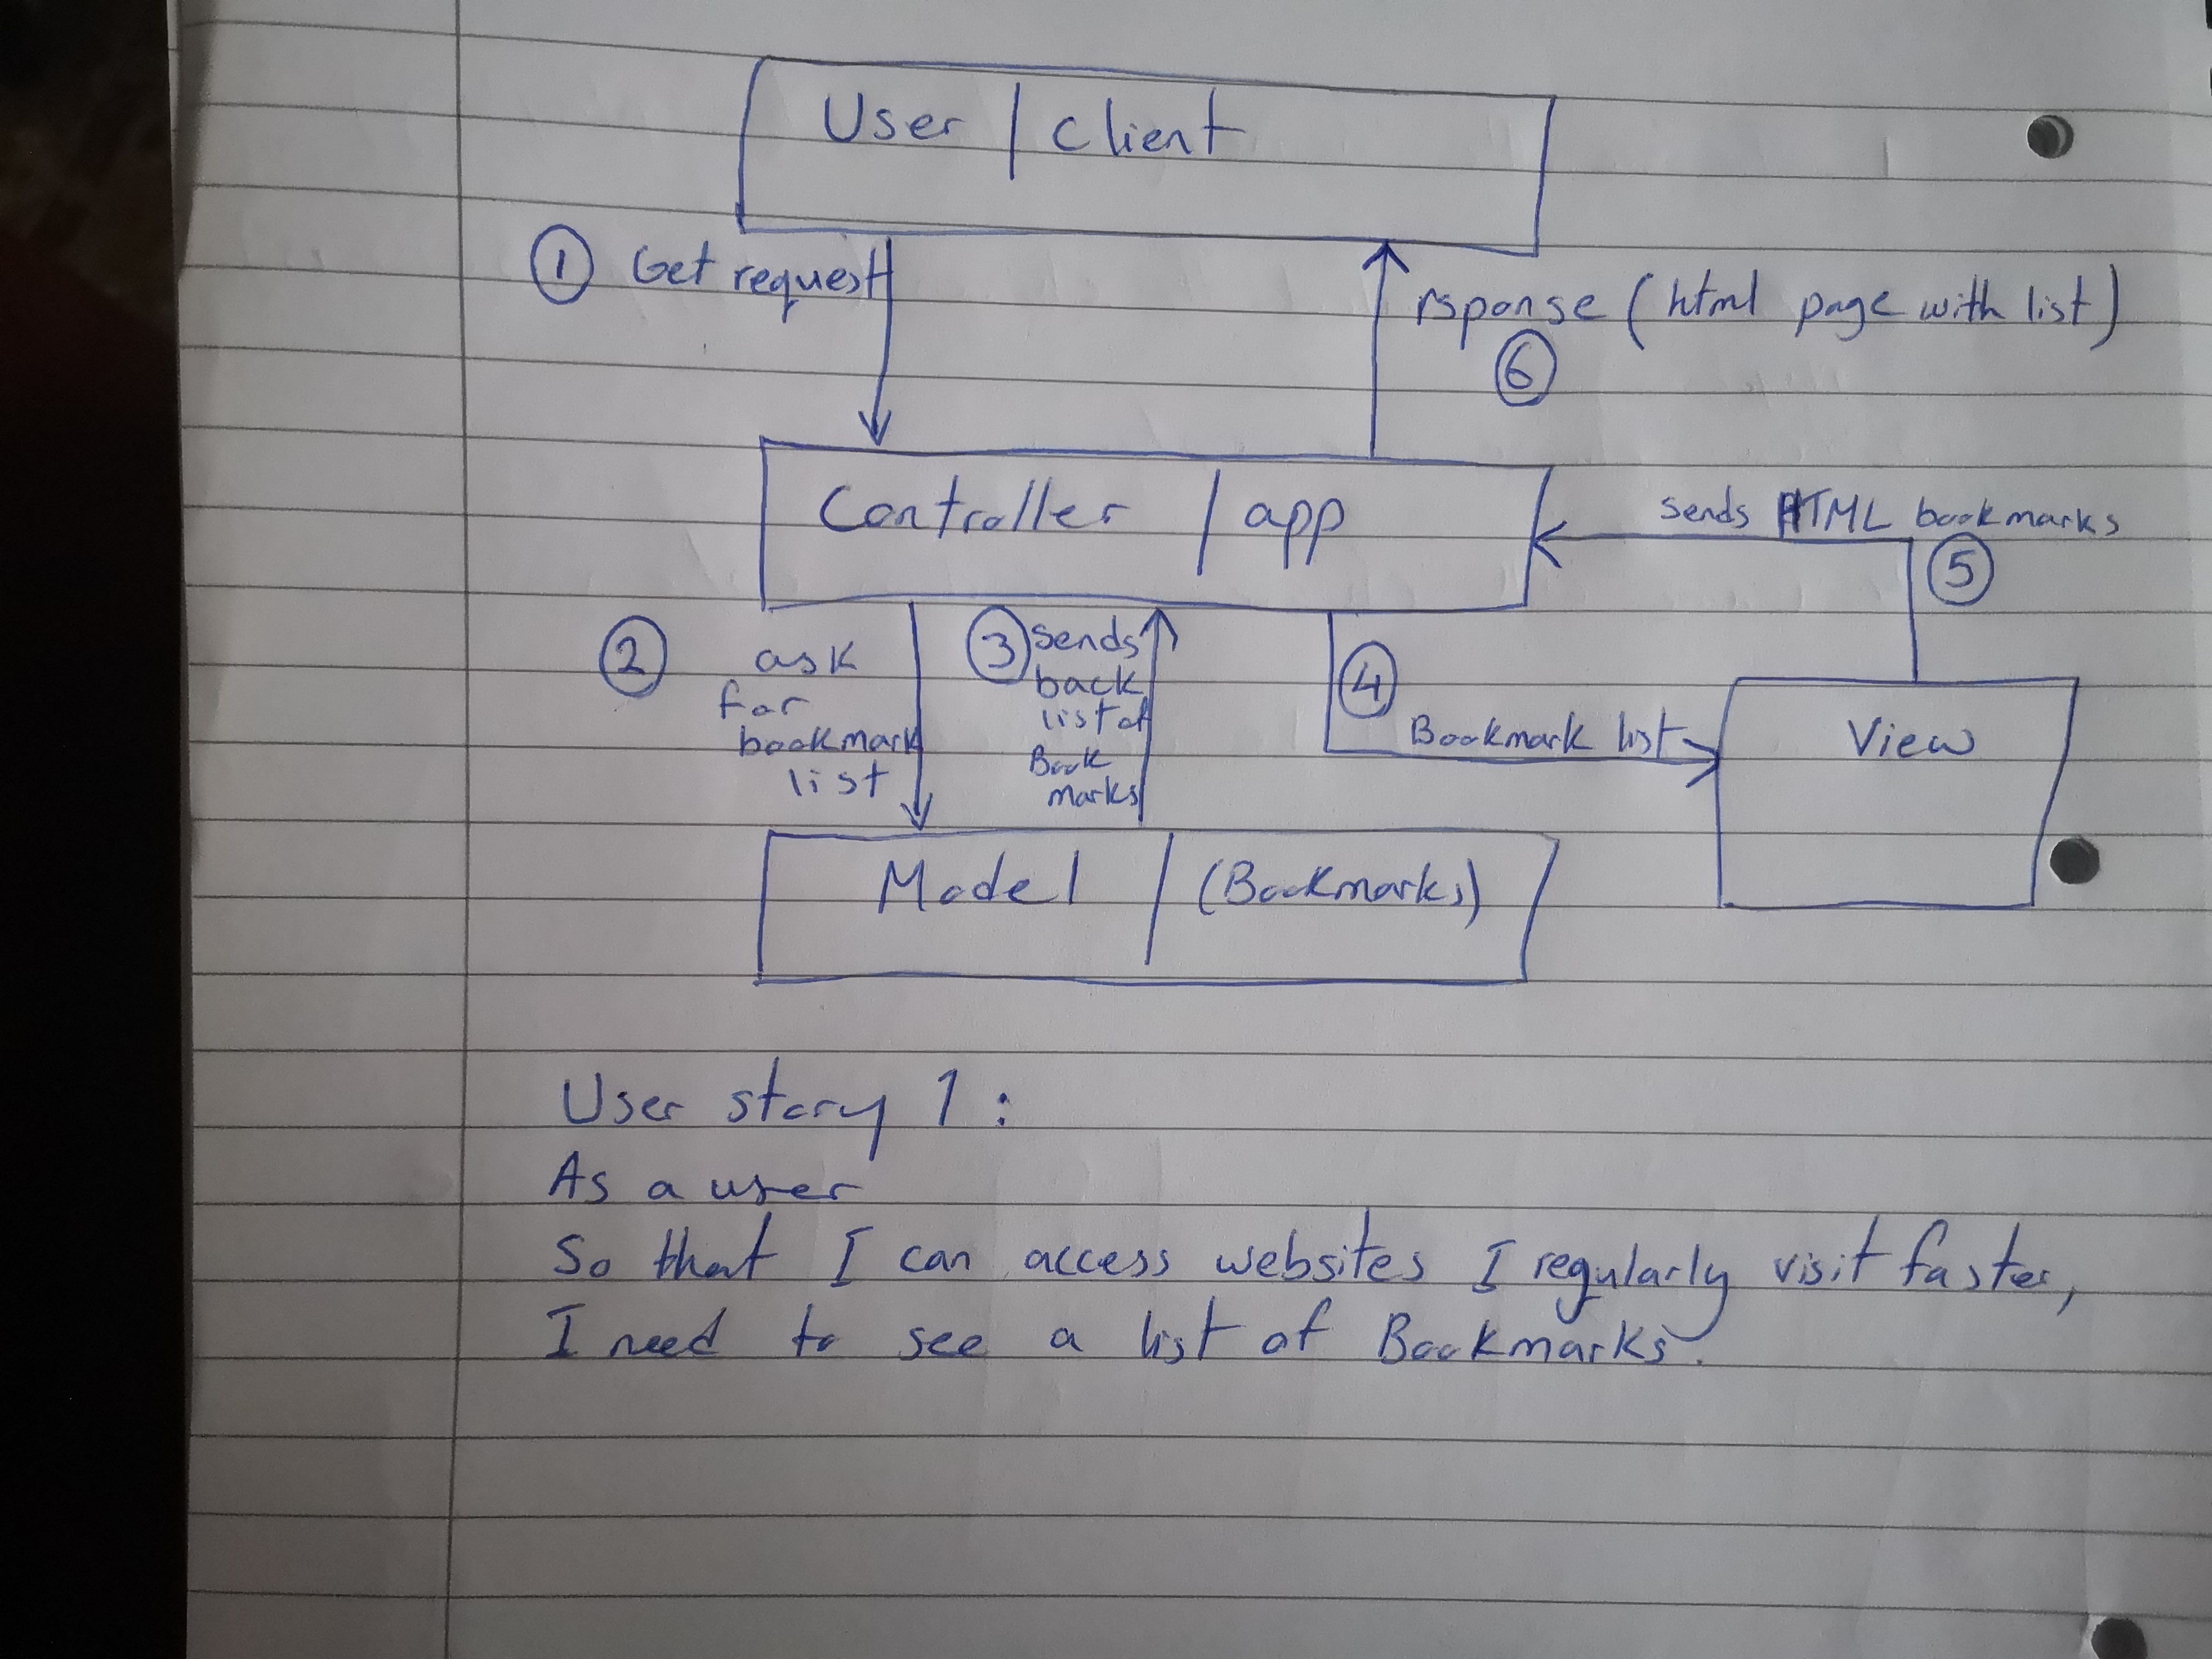 User / client
① Get request
rsponse (html page with list)
⑥
Controller / app
sends HTML bookmarks
⑤
② ask
for
bookmark
list
③ sends
back
list of
Book
marks
④
Bookmark list
View
Model / (Bookmarks)
User story 1:
As a user
So that I can access websites I regularly visit faster,
I need to see a list of Bookmarks.